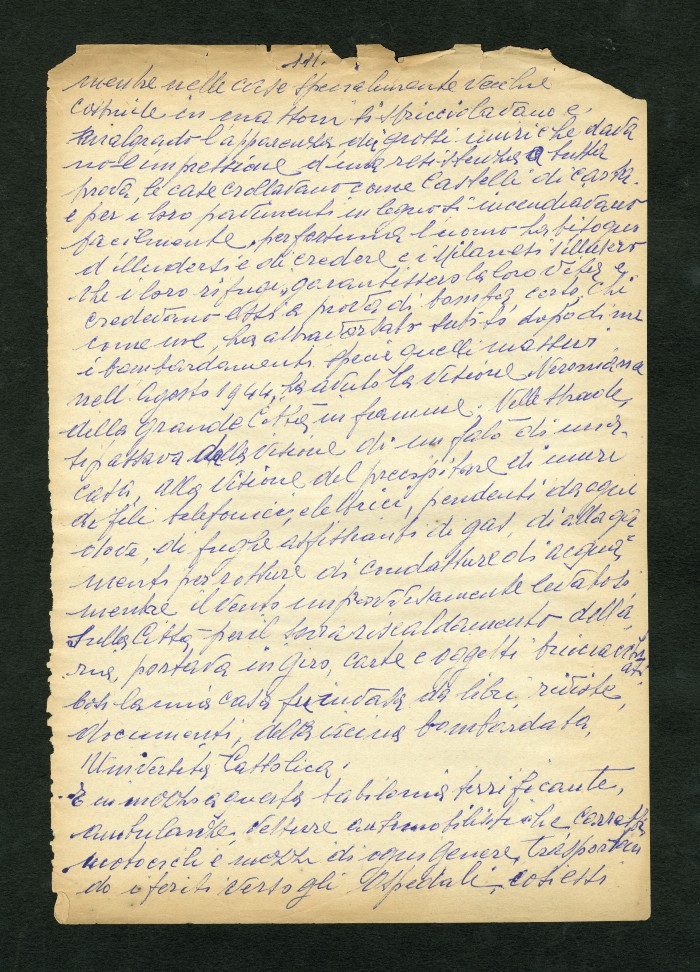 111.
mentre nelle case specialmente vecchie
costruite in mattoni si sbricciolavano e,
malgrado l'apparenza di grossi muri che dava
no l'impressione d'una resistenza a tutta
prova, le case crollavano come Castelli di carta
e per i loro pavimenti in legno si incendiavano
facilmente, per fortuna l'uomo ha bisogno
d'illudersi e di credere e i Milanesi s'illusero
che i loro rifugi garantissero la loro vita e
credevano essi a prova di bomba, certo, chi
come me, ha attraversato subito dopo di me
i bombardamenti specie quelli massicci
nell'Agosto 1944, ha avuto la visione Neroniana
della grande Città in fiamme. Nelle strade,
si passava dalla visione di un falò di una
casa, alla visione del precipitare di muri
di fili telefonici, elettrici, pendenti da ogni
dove, di fughe asfissianti di gas, di allaga
menti per rotture di condutture di acqua,
mentre il vento improvvisamente levatosi
sulla Città per il surriscaldamento dell'a
ria, portava in giro, carte e oggetti bruciacchi
ati.
Così la mia casa fu invasa da libri, riviste,
documenti, della vicina bombardata,
Università Cattolica.
E in mezzo a questa babilonia terrificante,
ambulanze, vetture automobilistiche, carrozze,
motocicli e mezzi di ogni genere, trasportan
do i feriti verso gli Ospedali, così essi